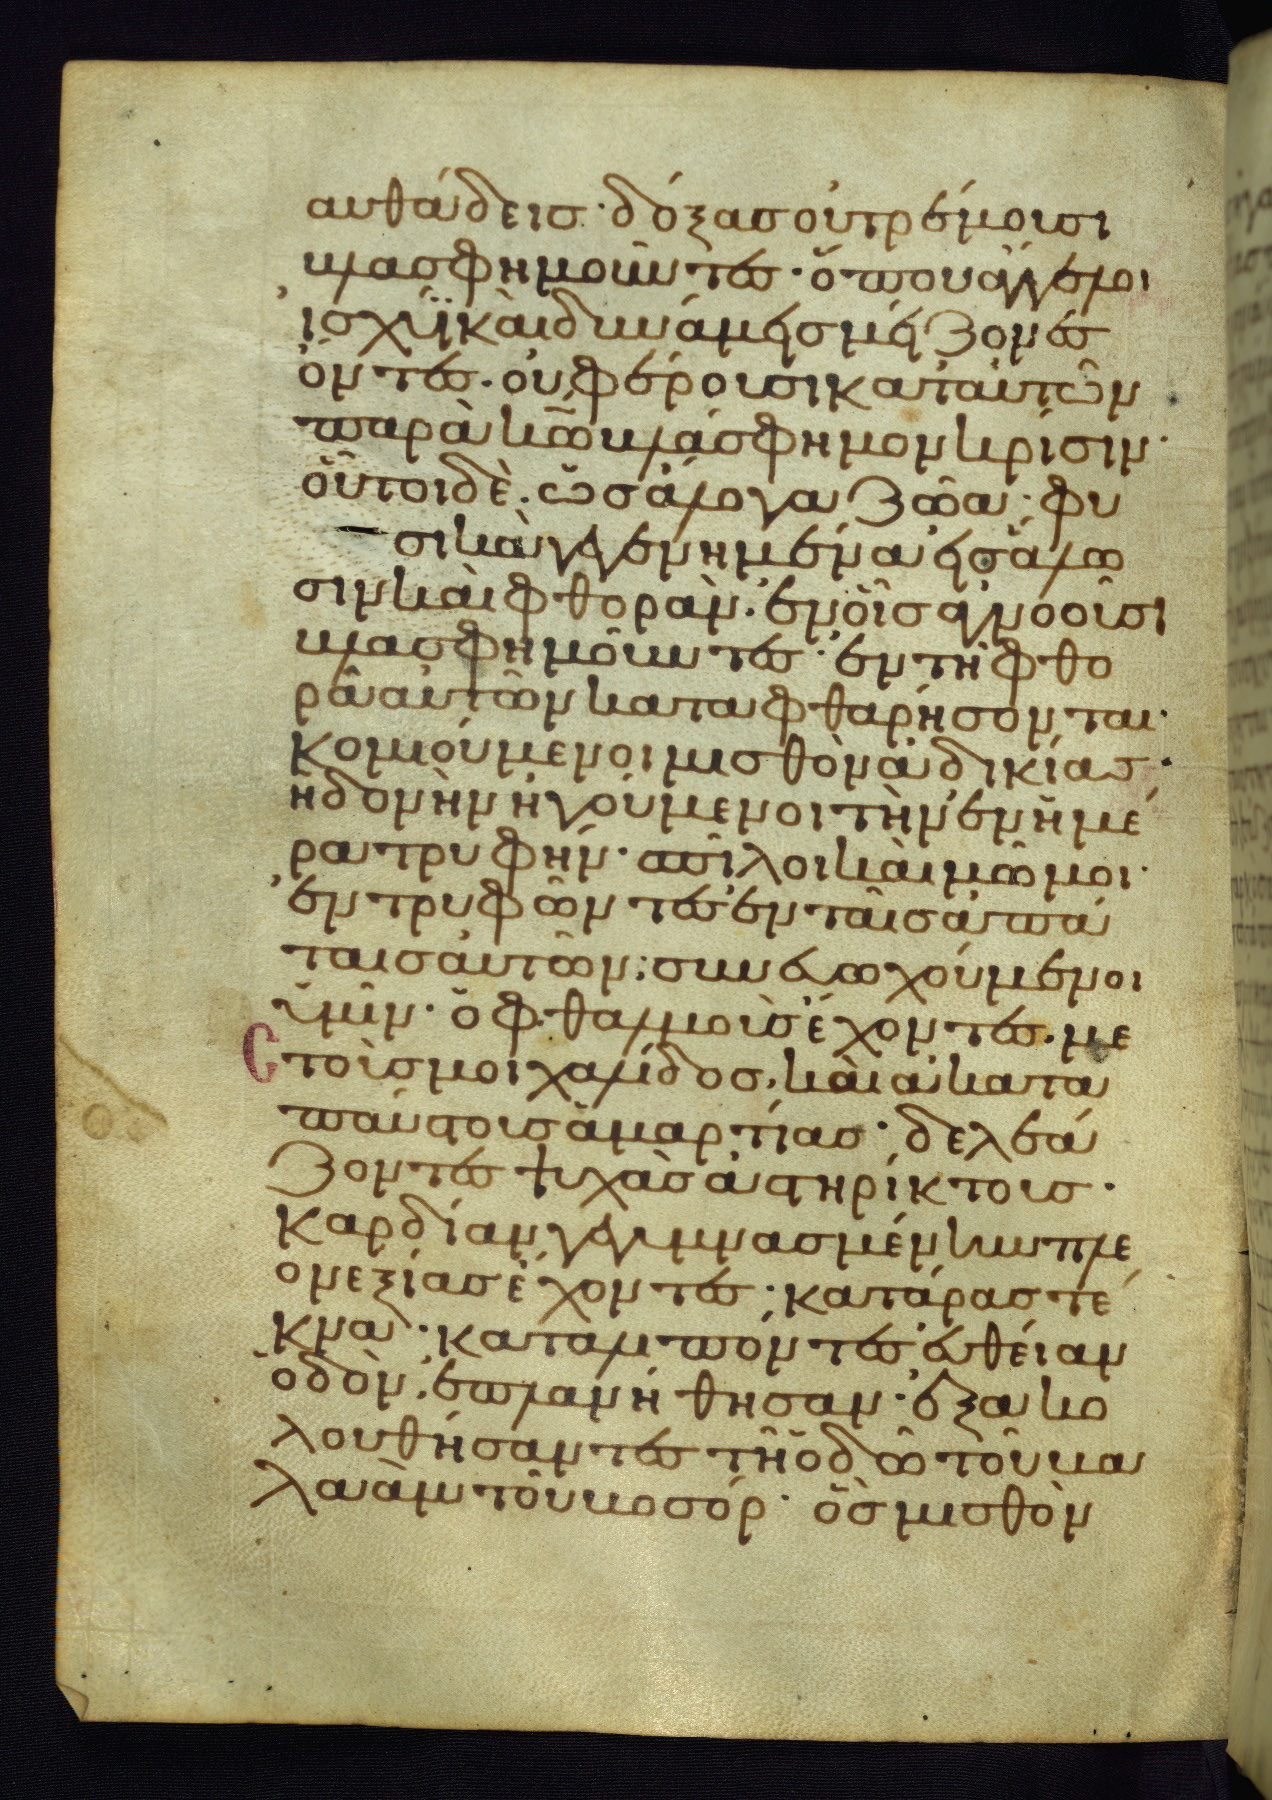 αυθάδεισ· δόξασ οὐ τρέμουσι
βλασφημοῦντες· ὅπου ἄγγελοι
ἰσχύϊ κὰι δυνάμει μείζονες
ὄντες· οὐ φέρουσι κατ' αὐτῶν
παρὰ κ̅ω̅ βλάσφημον κρίσιν·
οὗτοι δὲ· ὡσ άλογα ζῶα· φυ
σικὰ γεγενημένα εἰσ ἅλω
σιν κὰι φθορὰν· ἐν οἷσ ἀγνοοῦσι
βλασφημοῦντες· ἐν τῆ φθο
ρᾶ αὐτῶν καταφθαρήσονται·
κομιούμενοι μισθὸν ἀδικίασ·
ἡδονὴν ἡγούμενοι τὴν ἐν ἡμέ
ρα τρυφήν· σπῖλοι κὰι μῶμοι·
ἐντρυφῶντες ἐν ταῖσ ἀπά
ταισ αὐτῶν· συνευωχούμενοι
ὑμῖν· ὀφθαλμοὺσ ἔχοντες· με
στοὺσ μοιχαλίδοσ· κὰι ἀκατα
παύστουσ ἁμαρτίασ· δελεά
ζοντες ψυχὰσ ἀστηρίκτουσ·
καρδίαν γεγυμνασμένην πλε
ονεξίασ ἔχοντες· κατάρασ τέ
κνα· καταλιπόντες ἐυθείαν
ὁδὸν· ἐπλανήθησαν· ἐξακο
λουθήσαντες τῆ ὁδῶ τοῦ βα
λαὰμ τοῦ βοσόρ· ὃσ μισθὸν